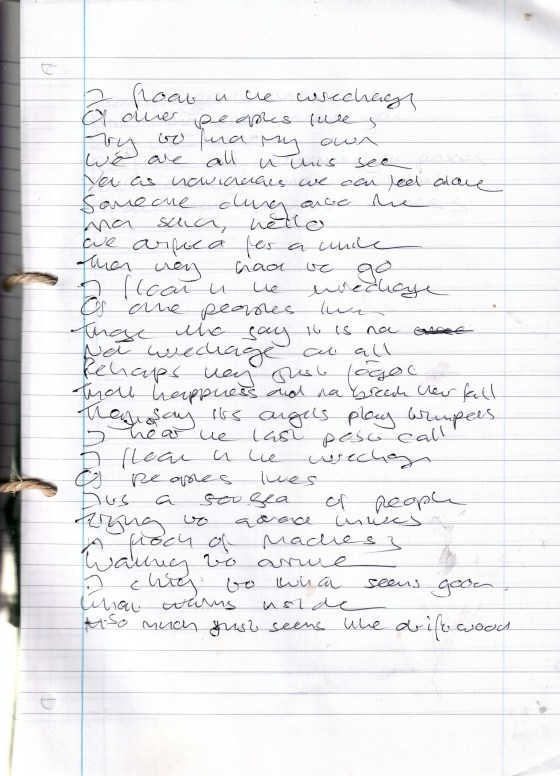 I float in the wreckage
Of other peoples lives
Try to find my own
We are all in this sea
Yet as we can feel alone
Someone clung onto me
hello
We drifted for a while
Then they had to go
I float in the wreckage
Of other peoples lives
Those who say it is not
Not wreckage at all
Perhaps they just forget
That happiness did not break their fall
They say its angels play trumpets
I hear the last post call
I float in the wreckage
Of peoples lives
Its a sea of people
Trying to avoid
A flock of madness
Waiting to arrive
I cling to what seems good
What warms inside
So much just seems like driftwood